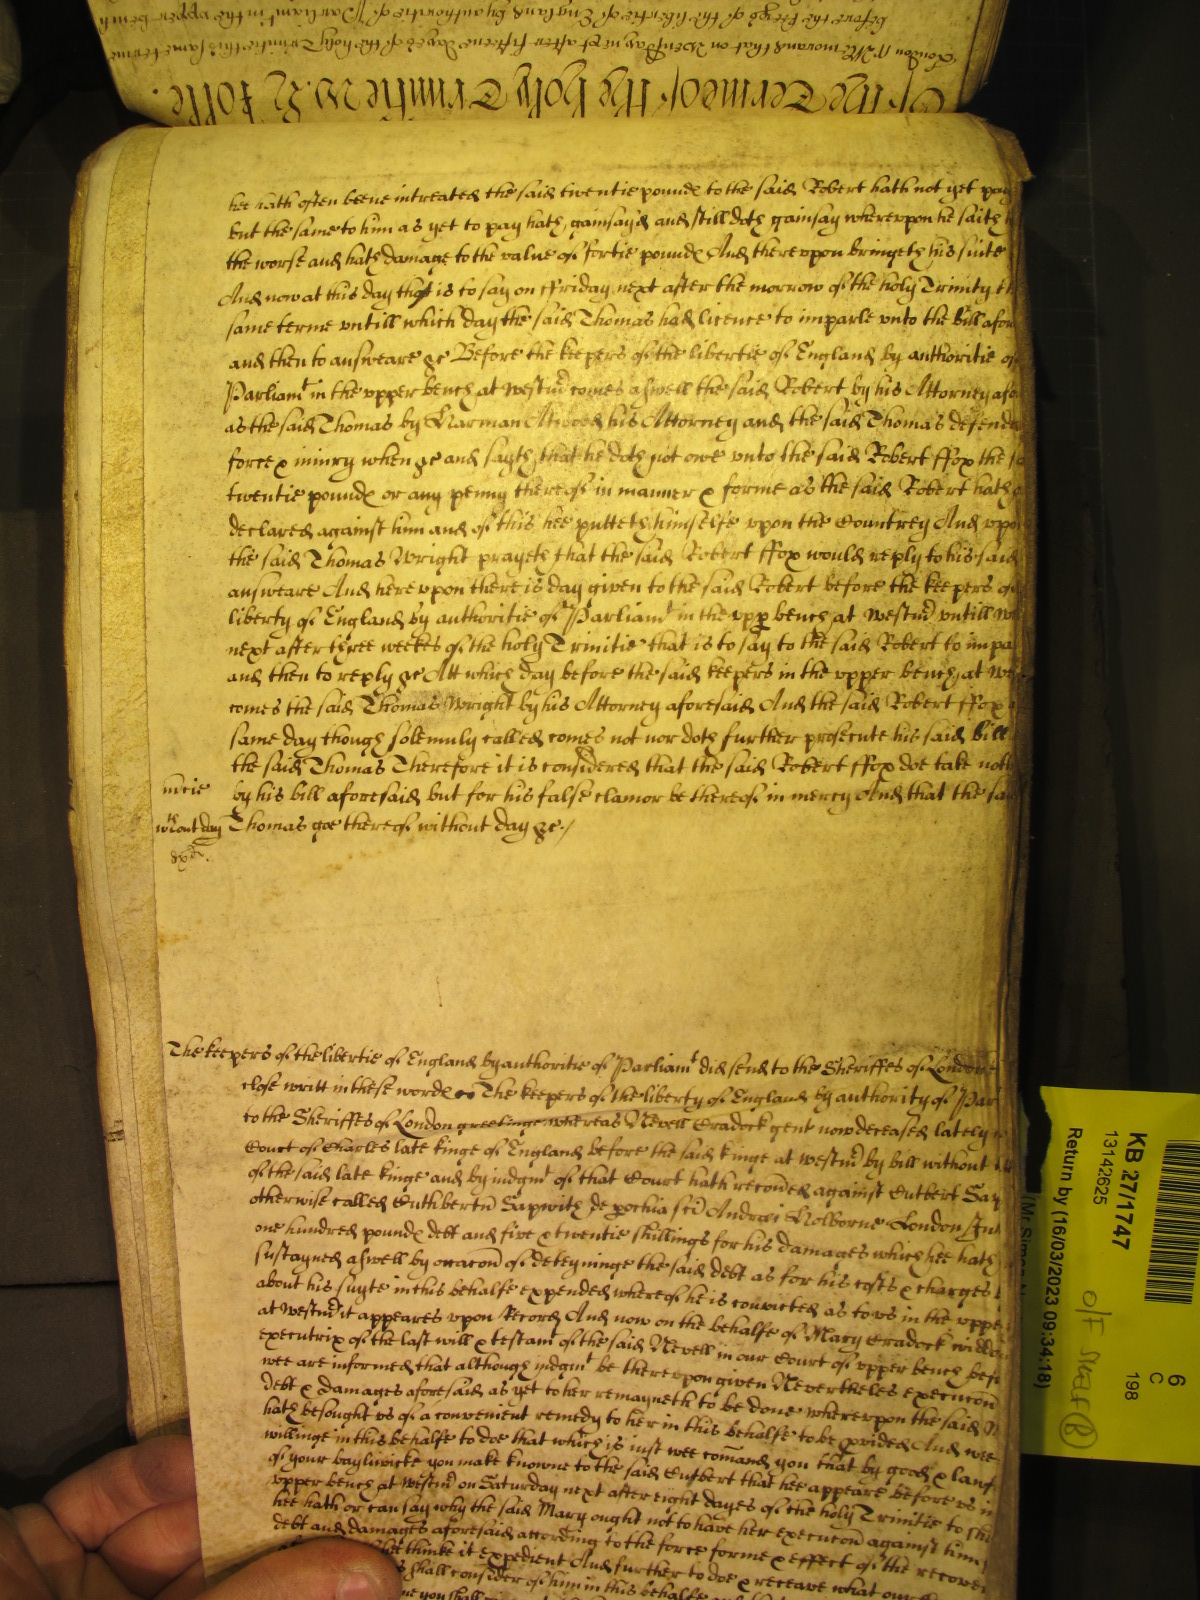 Of the Terme of the holy Trinitie
London ss Memorand that on Wensday next after fifteene dayes of the holy Trinitie this same terme
before the keeps of the libertie of England by authoritie of Parliamt in the upper bench
hee hath often beene intreated the said twentie pounds to the said Robert hath not yet pay
but the same to him as yet to pay hath gainsayd and still doth gainsay whereupon he saith
the worse and hath damage to the value of fortie pounds And thereupon bringeth his suite
And now at this day that is to say on ffriday next after the morrow of the holy Trinity
same terme untill which day the said Thomas had licence to imparle unto the bill afor
and then to answeare &c Before the keepers of the libertie of England by authoritie of
Parliamt in the upper bench at Westmr comes aswell the said Robert by his Attorney afo
as the said Thomas by Harman his Attorney and the said Thomas defende
force & iniury when &c and sayth that he doth not owe unto the said Robert ffox the
twentie pounds or any penny thereof in manner & forme as the said Robert hath
declared against him and of this hee putteth himselfe upon the Countrey And upo
the said Thomas Wright prayeth that the said Robert ffox would reply to his said
answeare And hereupon there is day given to the said Robert before the keepers of
liberty of England by authoritie of Parliamt in the upp bench at Westmr untill
next after three weekes of the holy Trinitie that is to say to the said Robert to impa
and then to reply &c Att which day before the said keepers in the upper bench at We
comes the said Thomas Wright by his Attorney aforesaid And the said Robert ffox
same day though solemnly called comes not nor doth further prosecute his said bill
the said Thomas Therefore it is considered that the said Robert ffox doe take noth
mcie
by his bill aforesaid but for his false clamor be thereof in mercy And that the sai
wthout day
Thomas goe thereof without day &c./
The keepers of the libertie of England by authoritie of Parliamt did send to the Sheriffes of London
close writt in these words ss The keepers of the liberty of England by authority of Par
to the Sheriffes of London greetinge whereas Nevell Cradock gent now deceased lately
Court of Charles late kinge of England before the said kinge at Westmr by bill without
of the said late kinge and by iudgmt of that Court hath recoued against Cutbert Sap
otherwise called Cuthbertu Sapwith de pochia sci Andree Holborne London
one hundred pounds debt and five & twentie shillings for his damages which hee hath
sustayned aswell by occacon of deteyninge the said debt as for his costs & charges
about his suyte in this behalfe expended whereof he is convicted as to us in the uppe
at Westmr it appeares upon Record And now on the behalfe of Mary Cradock widdo
executrix of the last will & testamt of the said Nevell in our Court of upper bench bef
wee are informed that although iudgmt be thereupon given Nevertheles execucon
debt & damages aforesaid as yet to her remayneth to be done whereupon the said M
hath besought us of a convenient remedy to her in this behalfe to be pvided And wee
willinge in this behalfe to doe that which is iust wee comand you that by good & lawf
of your bayliwicke you make knowne to the said Cutbert that hee appeare before us in
upper bench at Westmr on Saturday next after eight dayes of the holy Trinitie to sh
hee hath or can say why the said Mary ought not to have her execucon against him
debt and damages aforesaid according to the force forme & effect of the recover
hee thinke it expedient And further to doe & receave what our
shall consider of him in this behalfe
you shall
KB 27/1747
13142625
Return by (16/03/2023 09:34:18)
6
C
198